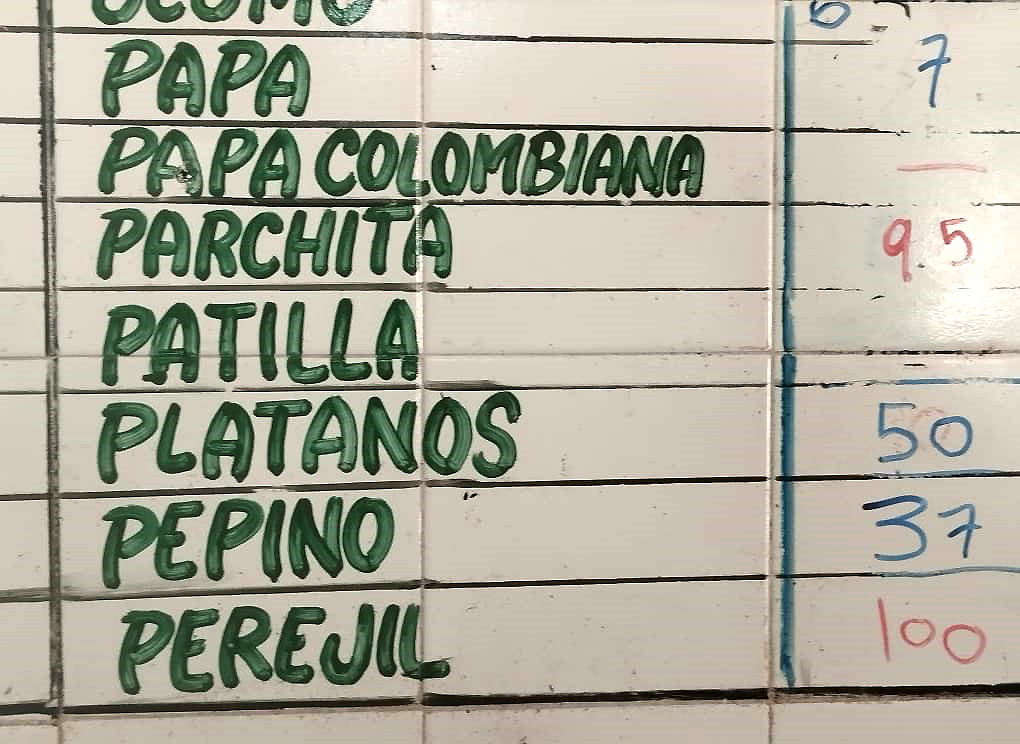 OCUMO 6
PAPA 7
PAPA COLOMBIANA —
PARCHITA 9.5
PATILLA
PLATANOS 50
PEPINO 37
PEREJIL 100